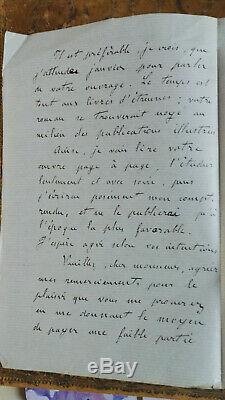 Il est préférable, je crois, que
j'attende janvier pour parler
de votre ouvrage. Le temps est
tout aux livres d'étrennes ; votre
roman se trouverait noyé au
milieu des publications illustrées
Ainsi, je vais lire votre
œuvre page à page, l'étudier
lentement et avec soin, puis
j'écrirai posément mon compte-
rendu, et ne le publierai qu'à
l'époque la plus favorable.
J'espère agir selon vos intentions.
Veuillez, cher monsieur, agréer
mes remerciements pour le
plaisir que vous me procurez
en me donnant le moyen
de payer une faible partie